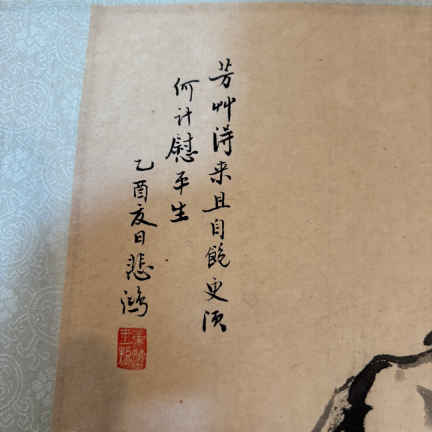 芳艸得来且自飽更须
何计慰平生
乙酉夜日悲鸿